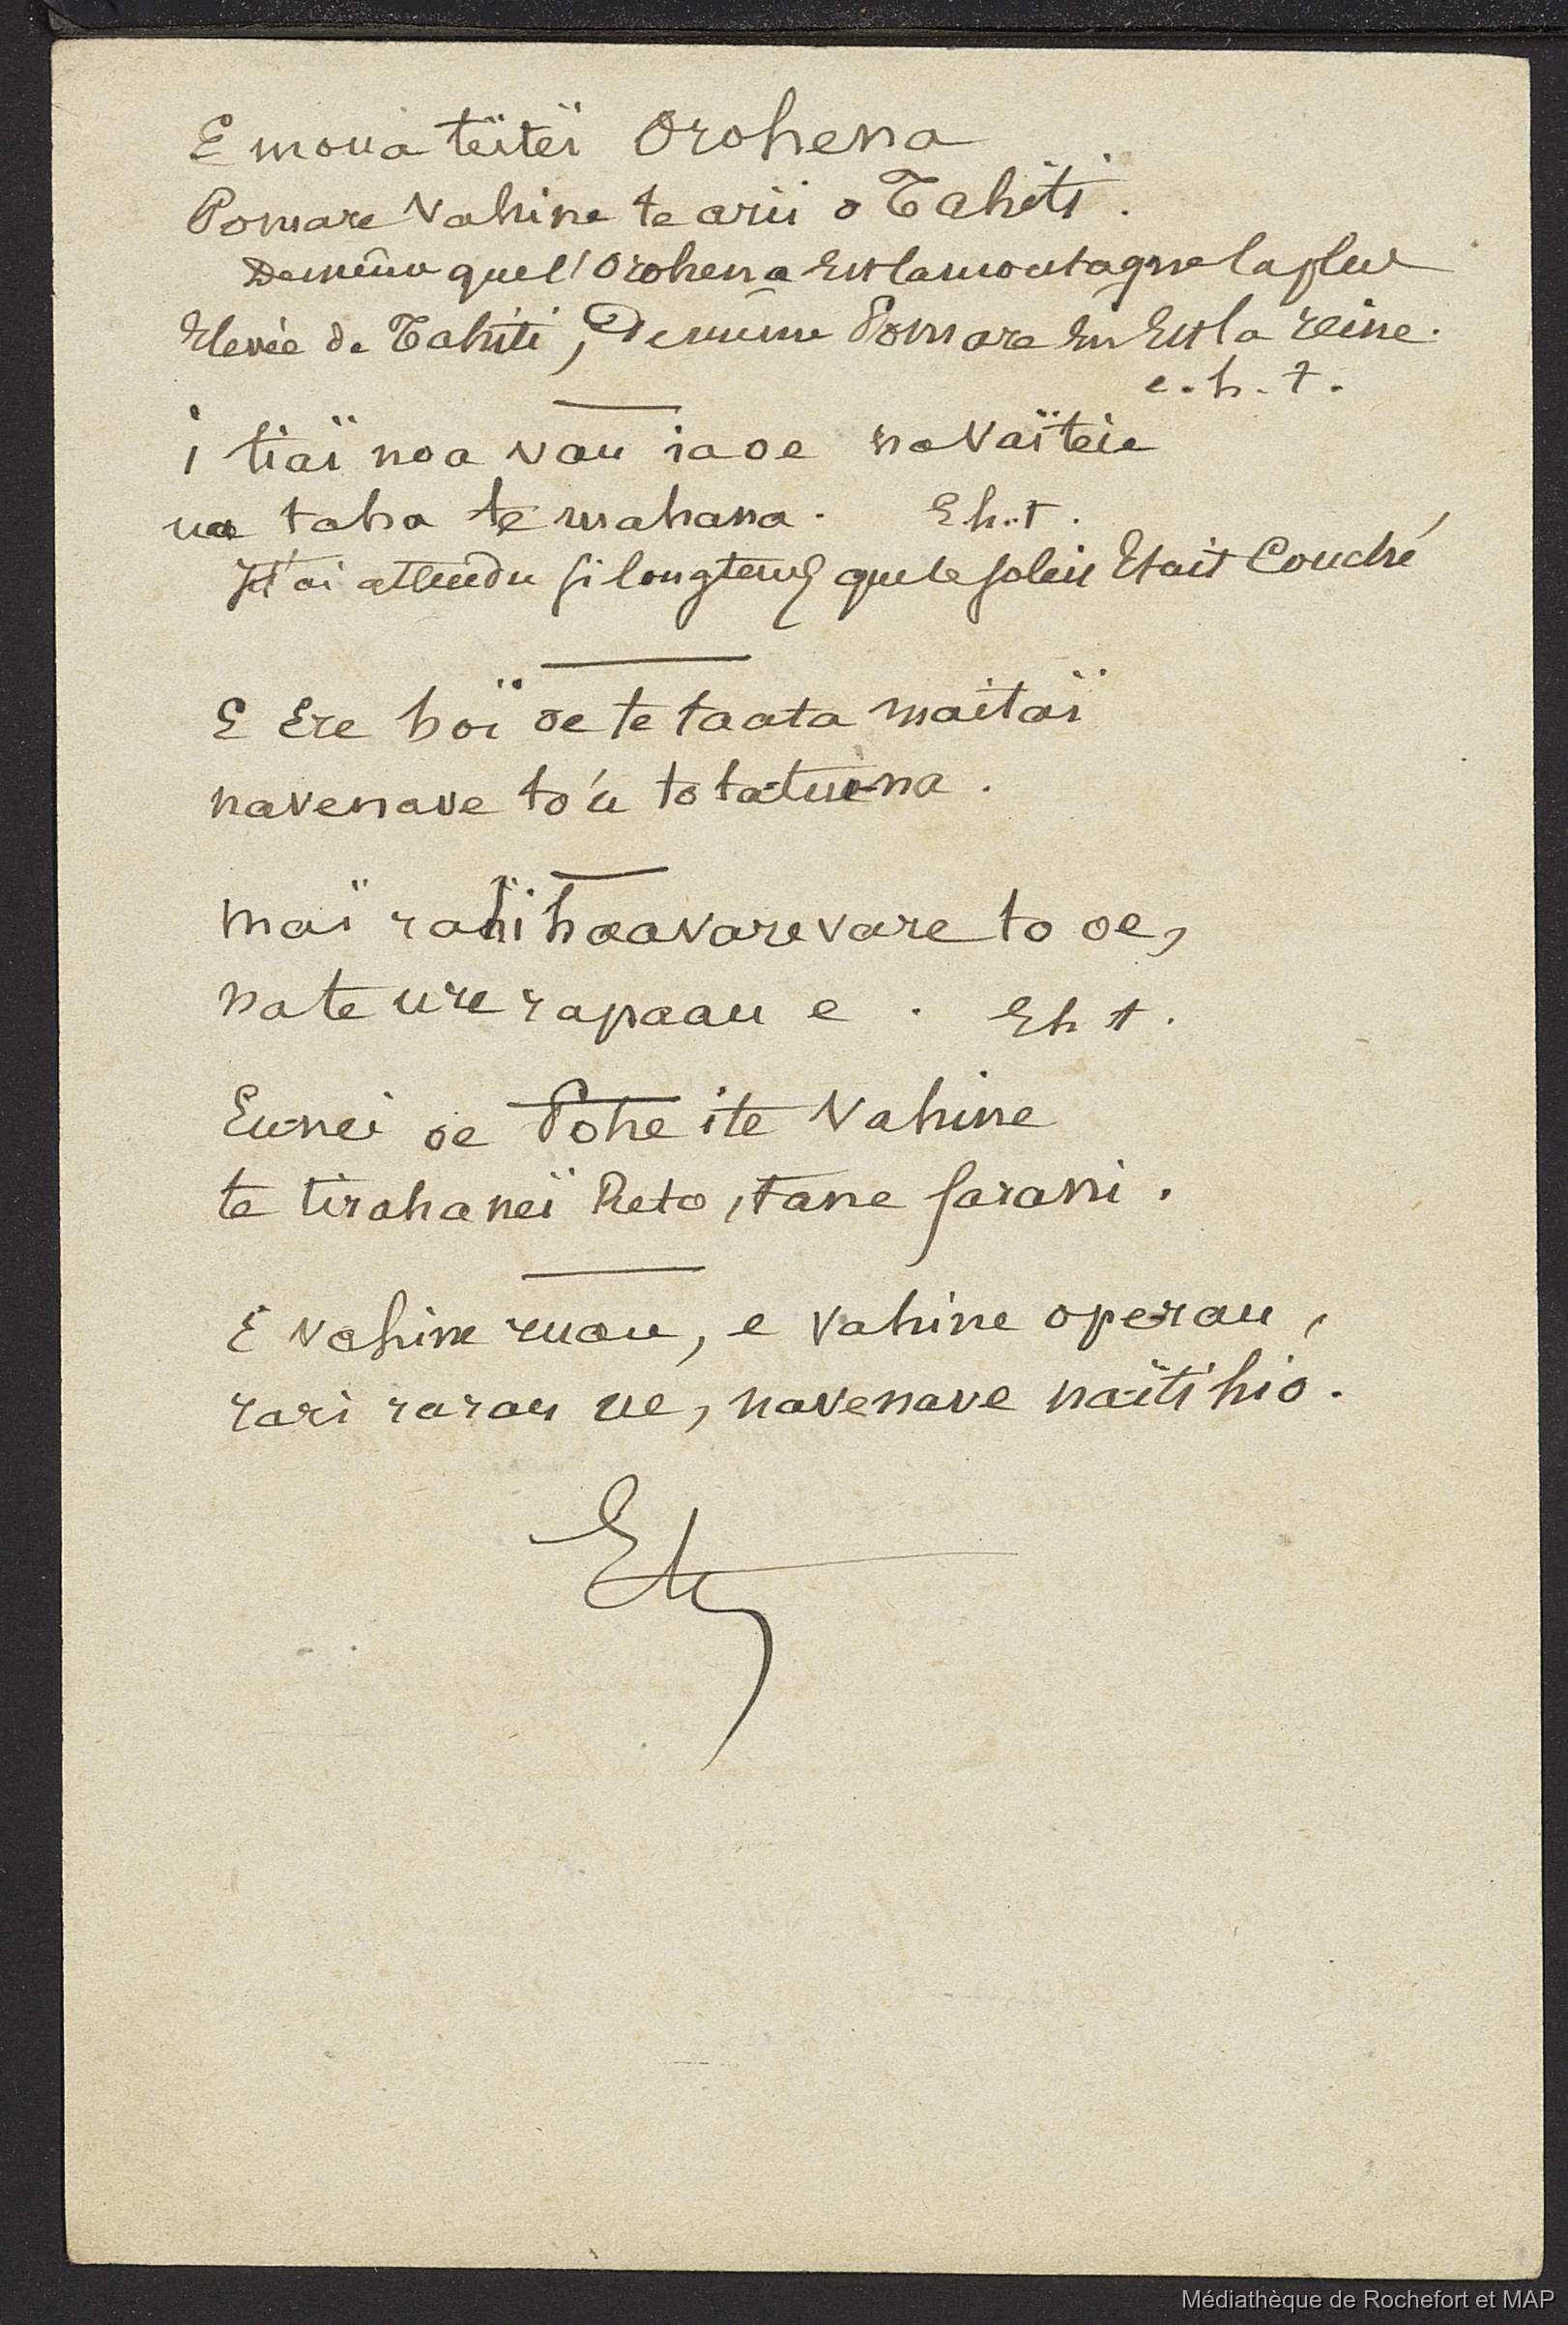 E moua teïteï Orohena
Pomare Vahine te arii o Tahiti.
De même que l'Orohena est la montagne la plus
Elevée de Tahiti, De même Pomare en Est la reine.
e. h. t.
i tiaï noa vau ia oe na Vaïteie
ua taha te mahana. E h. t.
Je t'ai attendu si longtems que le soleil Etait Couché
E Ere hoï oe te taata maitaï
navenave to'u totatu-na.
maï rahi haavarevare to oe,
na te ure rapaau e. E h t.
Eu-nei oe Pohe ite Vahine
te tirahaneï Reto, tane farani.
E Vahine ruau, e vahine operau,
rari rarau ue, navenave naïti hio.
Médiathèque de Rochefort et MAP